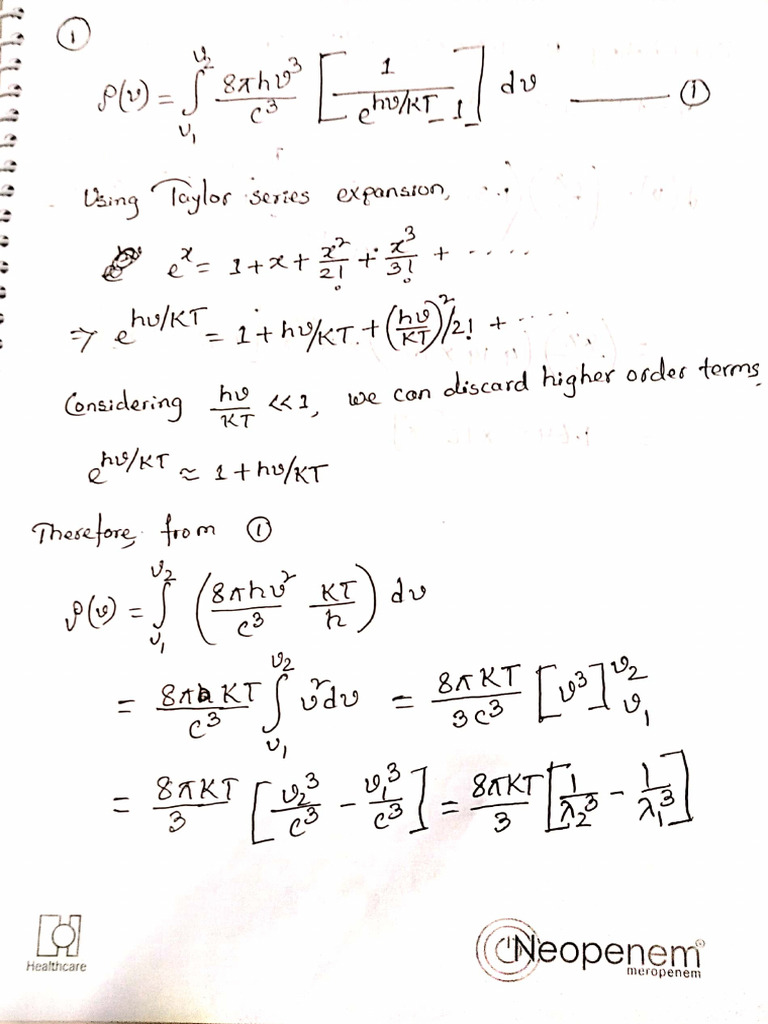 ①
ρ(υ) = ∫_{υ₁}^{υ₂} 8πhυ³/c³ [1/(e^{hυ/KT} - 1)] dυ ——— ①
Using Taylor series expansion,
e^x = 1 + x + x²/2! + x³/3! + .....
⇒ e^{hυ/KT} = 1 + hυ/KT + (hυ/KT)²/2! + ....
Considering hυ/KT << 1, we can discard higher order terms
e^{hυ/KT} ≃ 1 + hυ/KT
Therefore, from ①
ρ(υ) = ∫_{υ₁}^{υ₂} (8πhυ²/c³ KT/h) dυ
= 8πKT/c³ ∫_{υ₁}^{υ₂} υ²dυ = 8πKT/3c³ [υ³]_{υ₁}^{υ₂}
= 8πKT/3 [υ₂³/c³ - υ₁³/c³] = 8πKT/3 [1/λ₂³ - 1/λ₁³]
Healthcare
Neopenem
meropenem